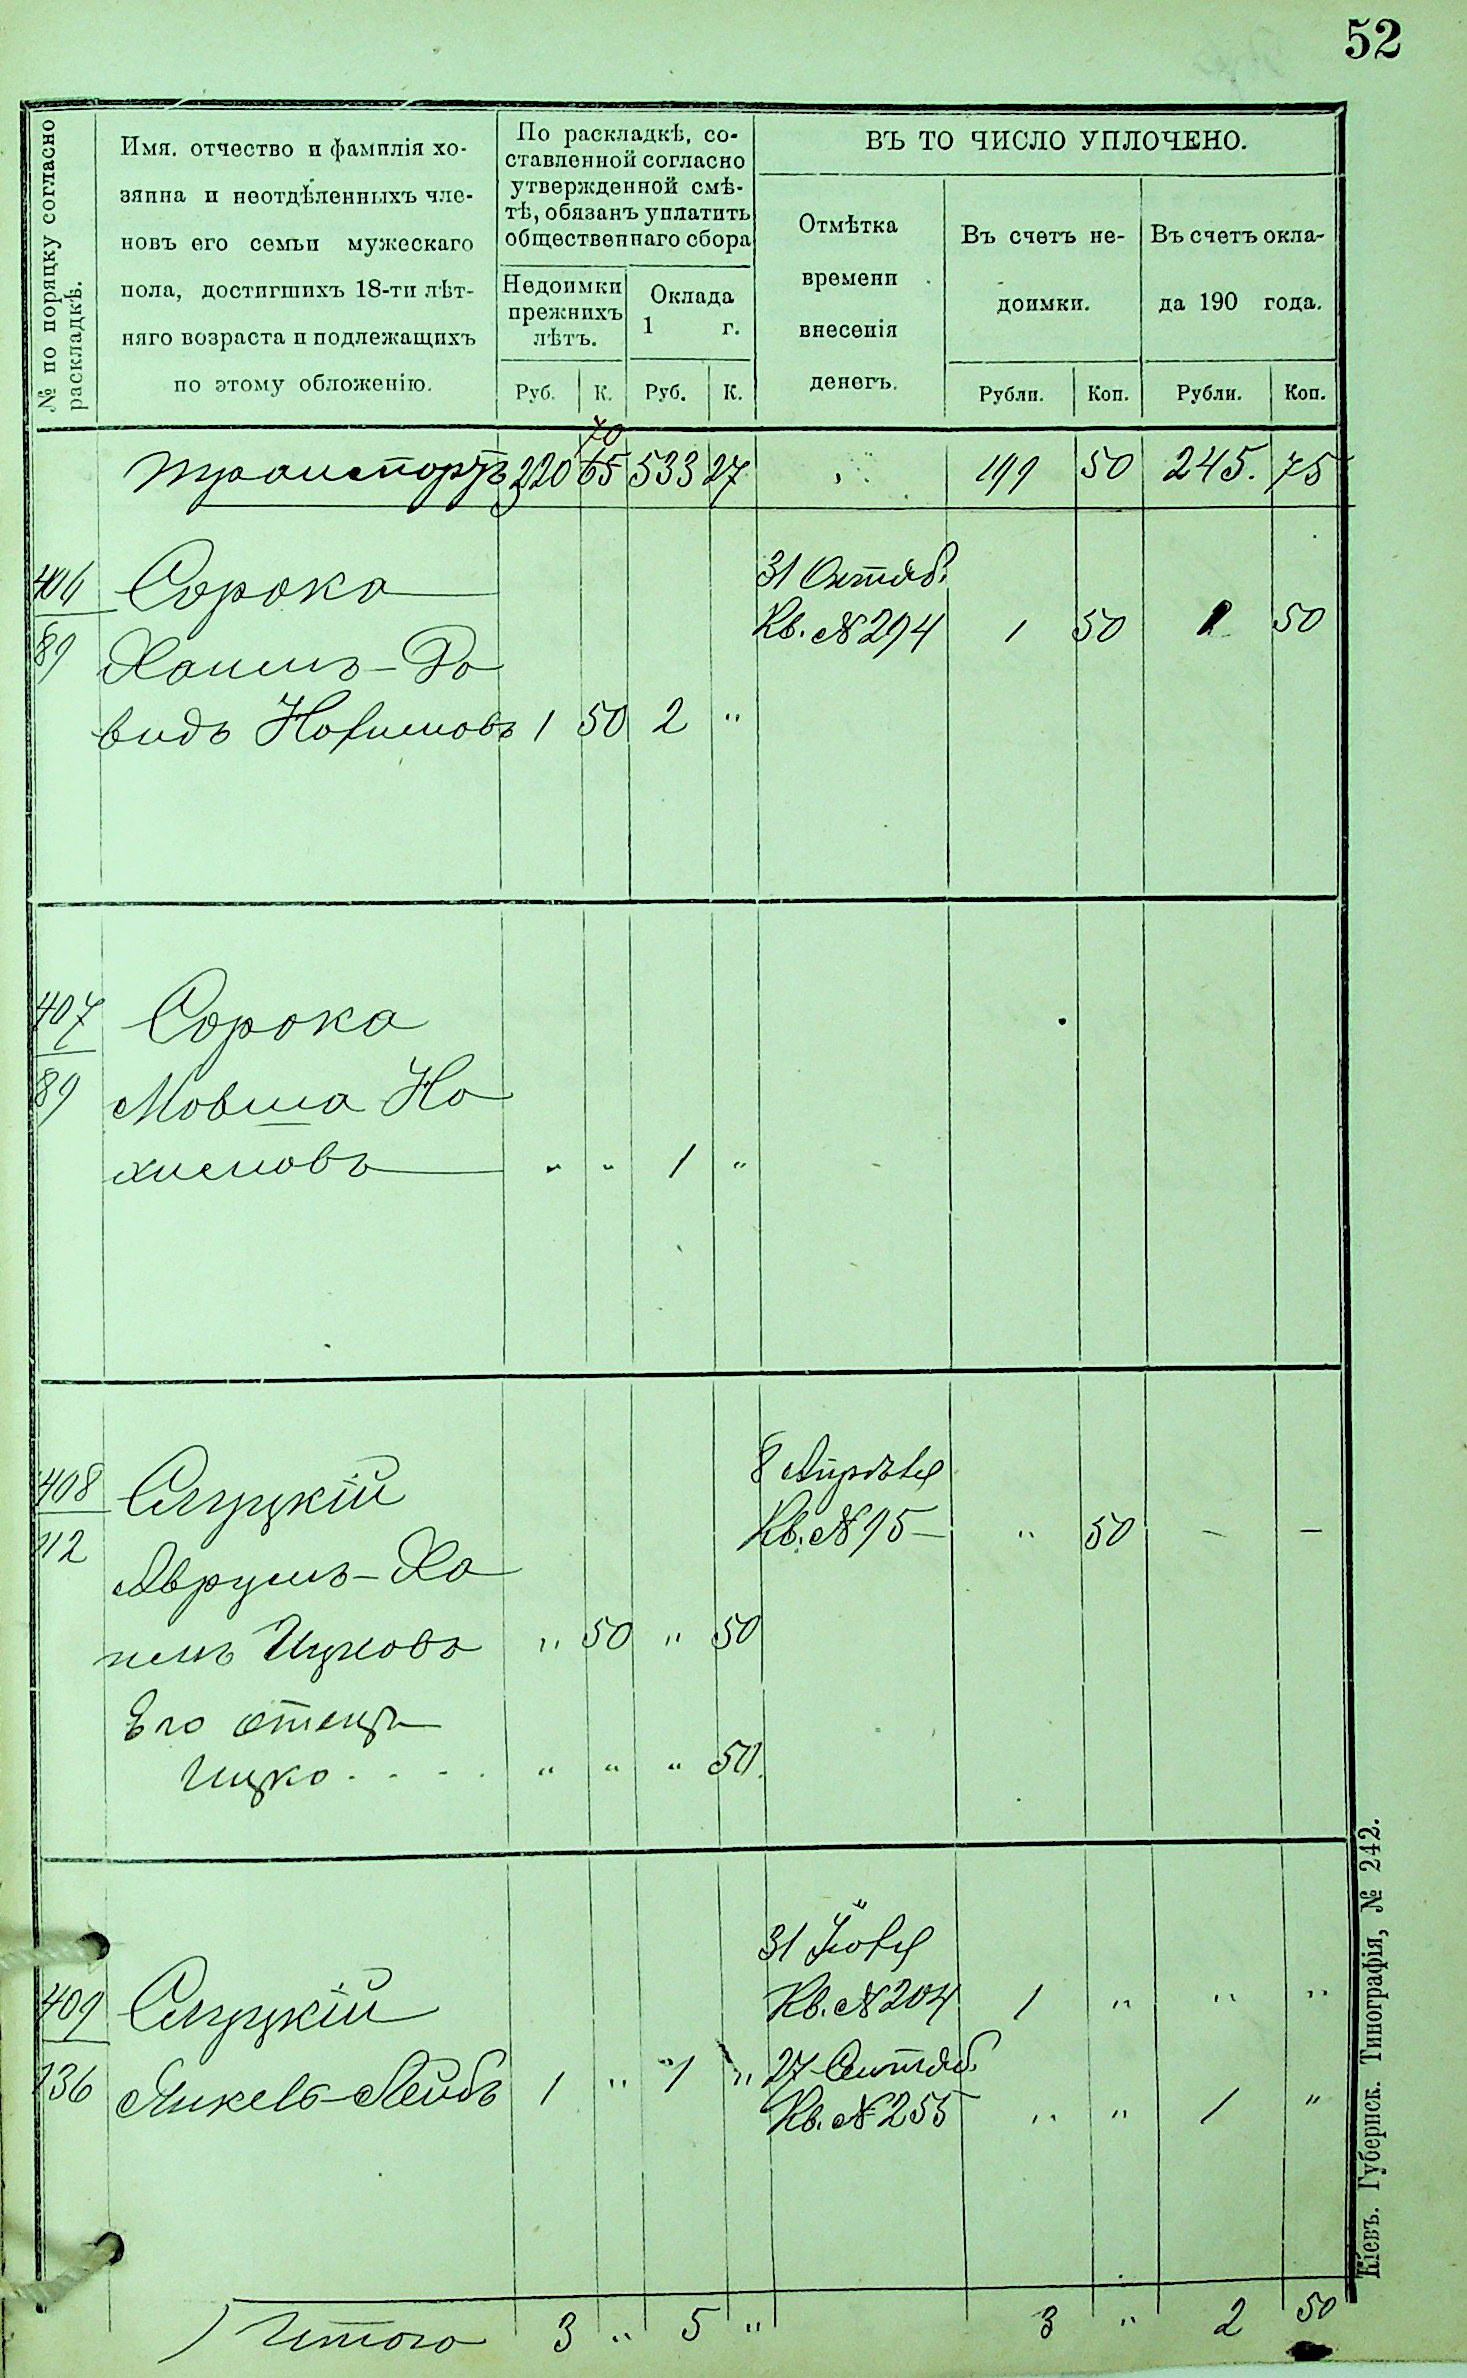 52
№ по порядку согласно
раскладкѣ.
Имя, отчество и фамилія хо-
зяина и неотдѣленныхъ чле-
новъ его семьи мужескаго
пола, достигшихъ 18-ти лѣт-
няго возраста и подлежащихъ
по этому обложенію.
По раскладкѣ, со-
ставленной согласно
утвержденной смѣ-
тѣ, обязанъ уплатить
общественнаго сбора
Недоимки
прежнихъ
лѣтъ.
Оклада
1 г.
Руб. К. Руб. К.
ВЪ ТО ЧИСЛО УПЛОЧЕНО.
Отмѣтка
времени
внесенія
денегъ.
Въ счетъ не-
доимки.
Въ счетъ окла-
да 190 года.
Рубли. Коп. Рубли. Коп.
70
транспортъ 320 65 533 27 191 50 245. 75
406 Сорока 31 Октяб.
Кв. № 294 1 50 1 50
89 Хаимъ-До
видъ Нохимовъ 1 50 2 "
407 Сорока
89 Мовша Но
химовъ " " 1 "
408 Слуцкій 8 Апрѣля
Кв. № 95 — " 50 — —
112 Аврумъ-Ха
имъ Ицковъ " 50 " 50
Его отецъ
Ицко . . . . " " " 50.
31 Іюля
409 Слуцкій Кв. № 204 1 " " "
27 Сентяб.
136 Янкель-Лейбъ 1 " 1 " Кв. № 255 " " 1 "
Итого 3 " 5 " 3 " 2 50
Кіевъ. Губернск. Типографія, № 242.